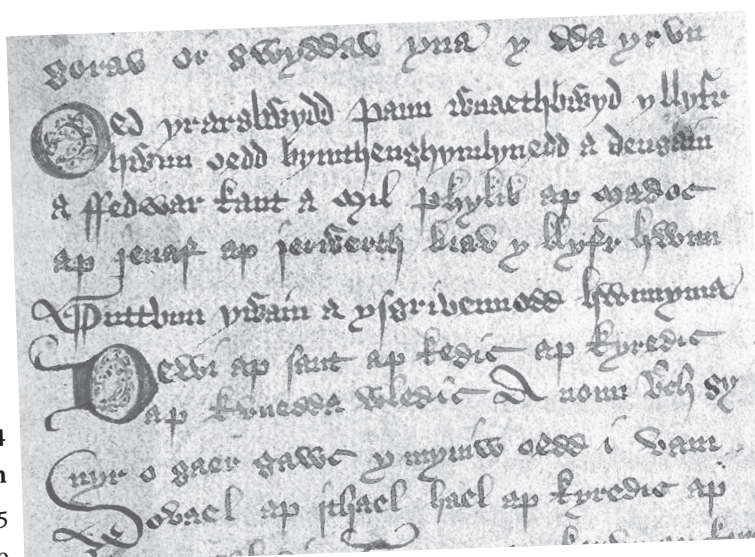 gorav or gwyddav yna y dda yr vn
Oed yrarglwydd pann wnaethbwyd y llyfr
hwnn oedd bymthenghymlynedd a deugain
a ffedwar kant a Mil phylib ap madoc
ap jenaf ap jerwerth biav y llyfr hwnn
Guttvun ywain a ysgrivennodd hwnnyma
Dewi ap sant ap kedic ap kyredic
ap kvnedda wledic A nonn verch gy
nyr o gaer gawc ymyniw oedd i vam
Dovael ap ithael hael ap kyredic ap
4
n
5